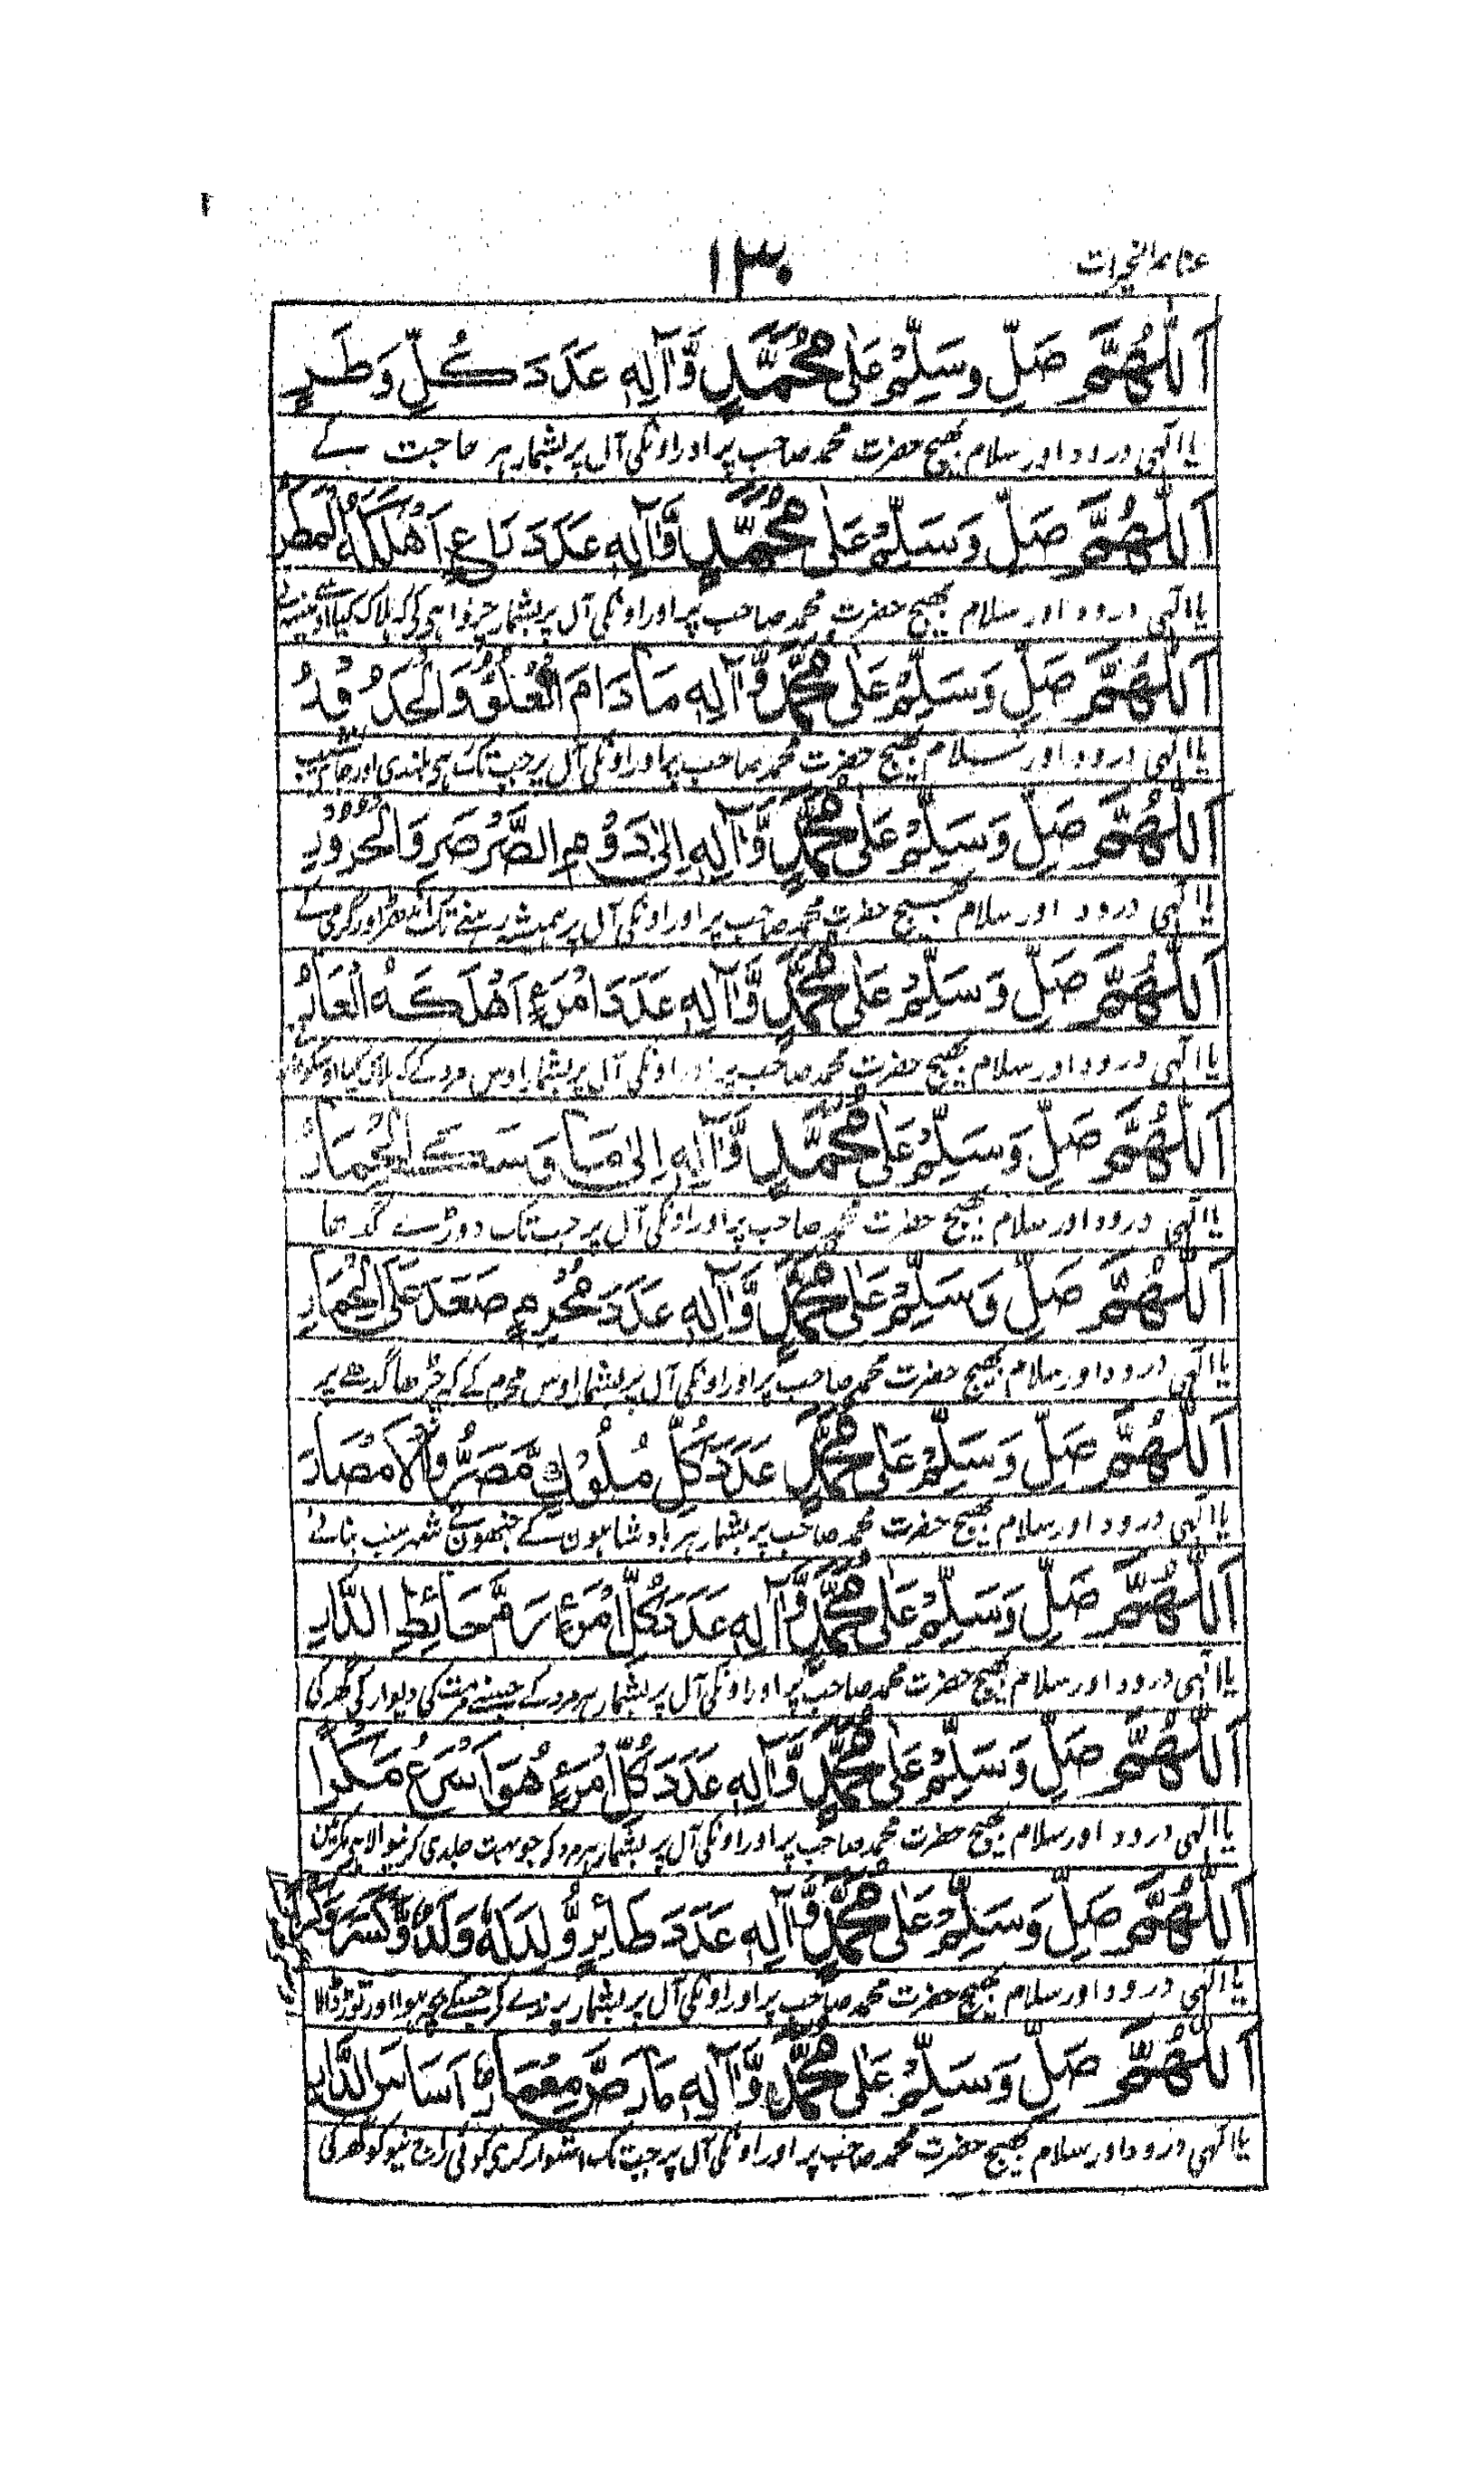 ۱۳۰
عناصر الخیرات
اَللّٰهُمَّ صَلِّ وَسَلِّمْ عَلٰى مُحَمَّدٍ وَّاٰلِهٖ عَدَدَ كُلِّ وَطَرٍ
یا الٰہی درود اور سلام بھیج حضرت محمد صاحب پر اور اونکی آل پر بشمار ہر حاجت کے
اَللّٰهُمَّ صَلِّ وَسَلِّمْ عَلٰى مُحَمَّدٍ وَّاٰلِهٖ عَدَدَ رَاعٍ اَهْلَكَهُ الْمَطَرُ
یا الٰہی درود اور سلام بھیج حضرت محمد صاحب پر اور اونکی آل پر بشمار چرواہی کی کہ ہلاک کیا اوسے مینہ نے
اَللّٰهُمَّ صَلِّ وَسَلِّمْ عَلٰى مُحَمَّدٍ وَّاٰلِهٖ مَا دَامَ الْعُلُوُّ وَالْحُدُوْرُ
یا الٰہی درود اور سلام بھیج حضرت محمد صاحب پر اور اونکی آل پر جب تک ہی بلندی اور
اَللّٰهُمَّ صَلِّ وَسَلِّمْ عَلٰى مُحَمَّدٍ وَّاٰلِهٖ اِلٰى دَوْمِ الصَّرْصَرِ وَالْحَرُوْرِ
یا الٰہی درود اور سلام بھیج حضرت محمد صاحب پر اور اونکی آل پر ہمیشہ رہنے تک اندھڑ اور گرمی کے
اَللّٰهُمَّ صَلِّ وَسَلِّمْ عَلٰى مُحَمَّدٍ وَّاٰلِهٖ عَدَدَ امْرَءٍ اَهْلَكَهُ الْعَارُ
یا الٰہی درود اور سلام بھیج حضرت محمد صاحب پر اور اونکی آل پر بشمار اوس مرد کے کہ ہلاک کیا اوسکو عار
اَللّٰهُمَّ صَلِّ وَسَلِّمْ عَلٰى مُحَمَّدٍ وَّاٰلِهٖ اِلٰى مَا الْحِمَارُ
یا الٰہی درود اور سلام بھیج حضرت محمد صاحب پر اور اونکی آل پر جب تک دوڑے گدھا
اَللّٰهُمَّ صَلِّ وَسَلِّمْ عَلٰى مُحَمَّدٍ وَّاٰلِهٖ عَدَدَ مُحْرِمٍ صَعَدَ عَلَى الْحِمَارِ
یا الٰہی درود اور سلام بھیج حضرت محمد صاحب پر اور اونکی آل پر بشمار اوس محرم کے کہ چڑھا گدھے پر
اَللّٰهُمَّ صَلِّ وَسَلِّمْ عَلٰى مُحَمَّدٍ عَدَدَ كُلِّ مُلُوْكٍ مَّصَّرُوا الْاَمْصَارَ
یا الٰہی درود اور سلام بھیج حضرت محمد صاحب پر بشمار ہر بادشاہون کے جنھون نے شہر بنائے
اَللّٰهُمَّ صَلِّ وَسَلِّمْ عَلٰى مُحَمَّدٍ وَّاٰلِهٖ عَدَدَ كُلِّ امْرَءٍ رَمَّ حَائِطَ الدَّارِ
یا الٰہی درود اور سلام بھیج حضرت محمد صاحب پر اور اونکی آل پر بشمار ہر مرد کے جسنے مرمت کی دیوار کی گھر کی
اَللّٰهُمَّ صَلِّ وَسَلِّمْ عَلٰى مُحَمَّدٍ وَّاٰلِهٖ عَدَدَ كُلِّ امْرَءٍ هُوَ اَسْرَعُ مَكْرًا
یا الٰہی درود اور سلام بھیج حضرت محمد صاحب پر اور اونکی آل پر بشمار ہر مرد کہ جو بہت جلدی کرنیوالا ہو مکر مین
اَللّٰهُمَّ صَلِّ وَسَلِّمْ عَلٰى مُحَمَّدٍ وَّاٰلِهٖ عَدَدَ طَائِرٍ وُّلِدَ لَهٗ وَلَدٌ وَّكَسَرَ
یا الٰہی درود اور سلام بھیج حضرت محمد صاحب پر اور اونکی آل پر بشمار پرندے کے جسکے بچہ ہوا اور توڑ ڈالا
اَللّٰهُمَّ صَلِّ وَسَلِّمْ عَلٰى مُحَمَّدٍ وَّاٰلِهٖ مَا رَصَّ مِعْمَارٌ اَسَاسَ الدَّارِ
یا الٰہی درود اور سلام بھیج حضرت محمد صاحب پر اور اونکی آل پر جب تک استوار کری کوئی راج نیو کو گھر کی